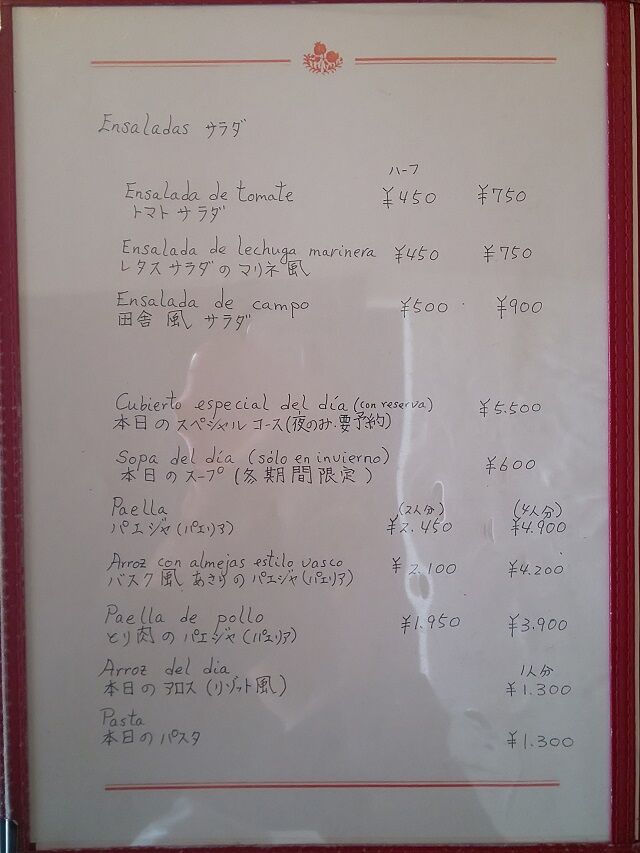 Ensaladas サラダ
ハーフ
Ensalada de tomate ¥450 ¥750
トマト サラダ
Ensalada de lechuga marinera ¥450 ¥750
レタス サラダ の マリネ 風
Ensalada de campo ¥500 ¥900
田舎 風 サラダ
Cubierto especial del día (con reserva) ¥5.500
本日 の スペシャル コース(夜のみ・要予約)
Sopa del día (sólo en invierno) ¥600
本日 の スープ (冬期間限定)
Paella (2人分) (4人分)
パエジャ(パエリア) ¥2.450 ¥4.900
Arroz con almejas estilo vasco ¥2.100 ¥4.200
バスク風 あさりの パエジャ(パエリア)
Paella de pollo ¥1.950 ¥3.900
とり肉 の パエジャ(パエリア)
Arroz del dia 1人分
本日 の アロス (リゾット風) ¥1.300
Pasta
本日 の パスタ ¥1.300